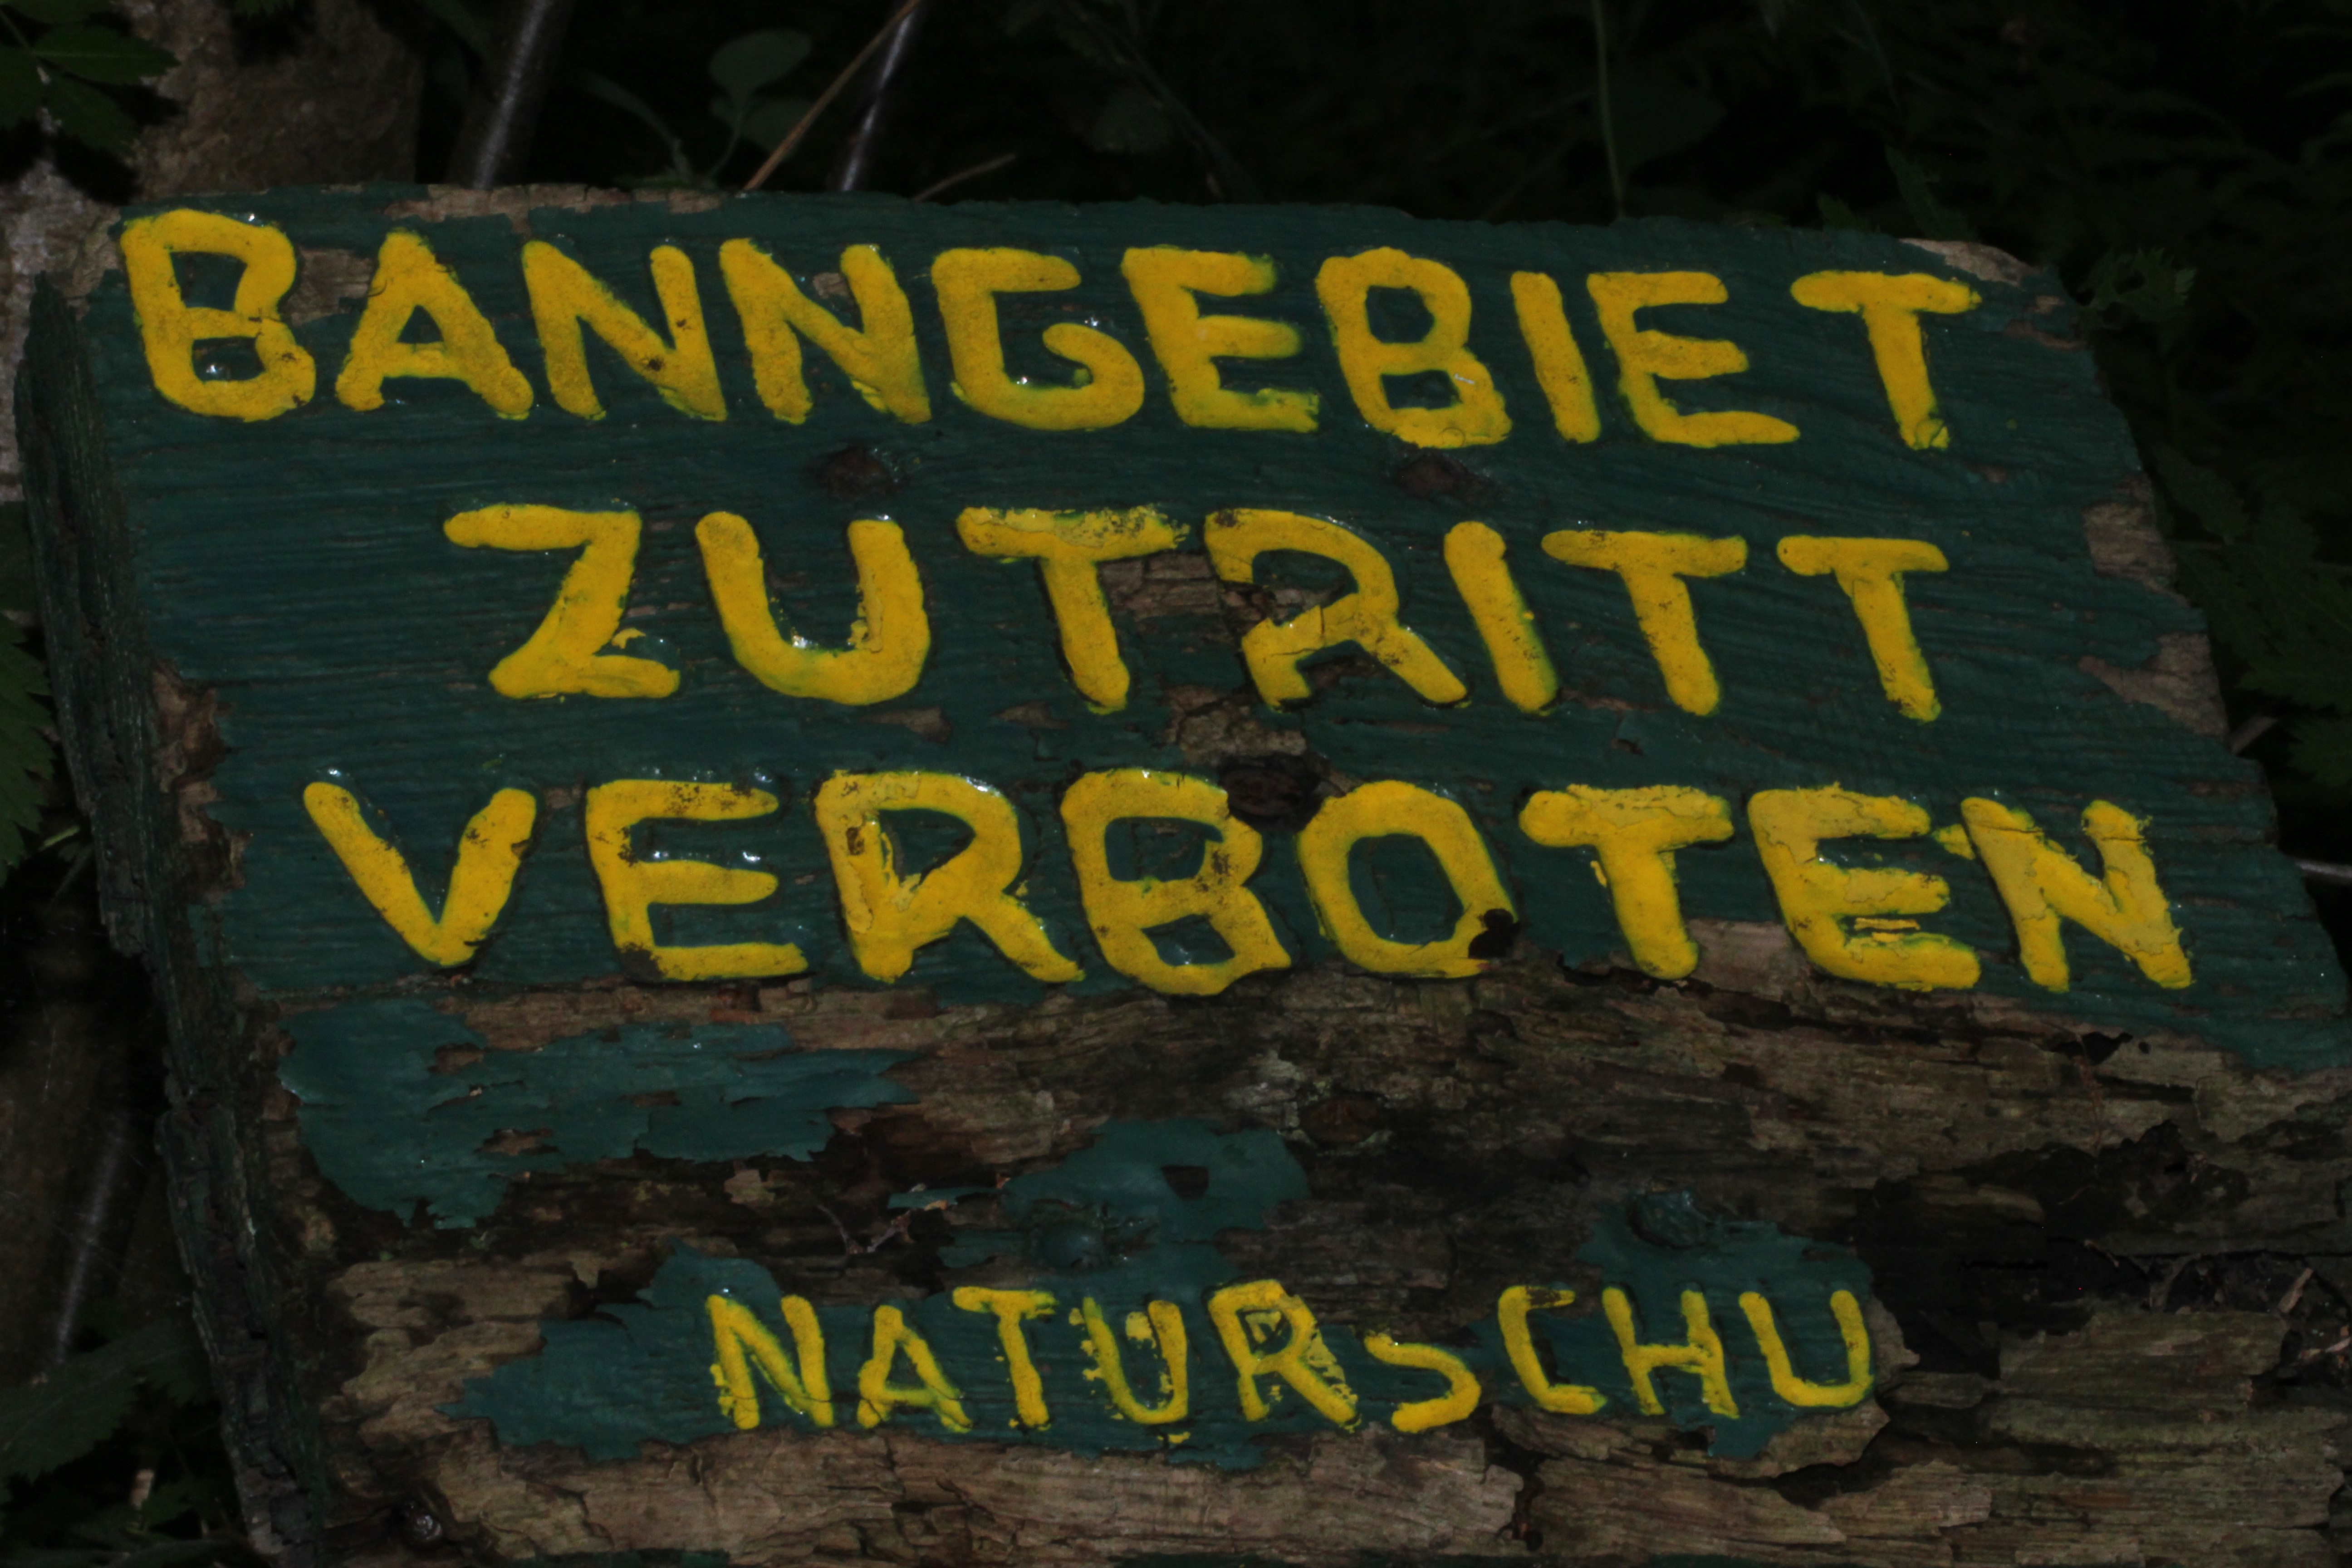 BANNGEBIET
ZUTRITT
VERBOTEN
NATURSCHU